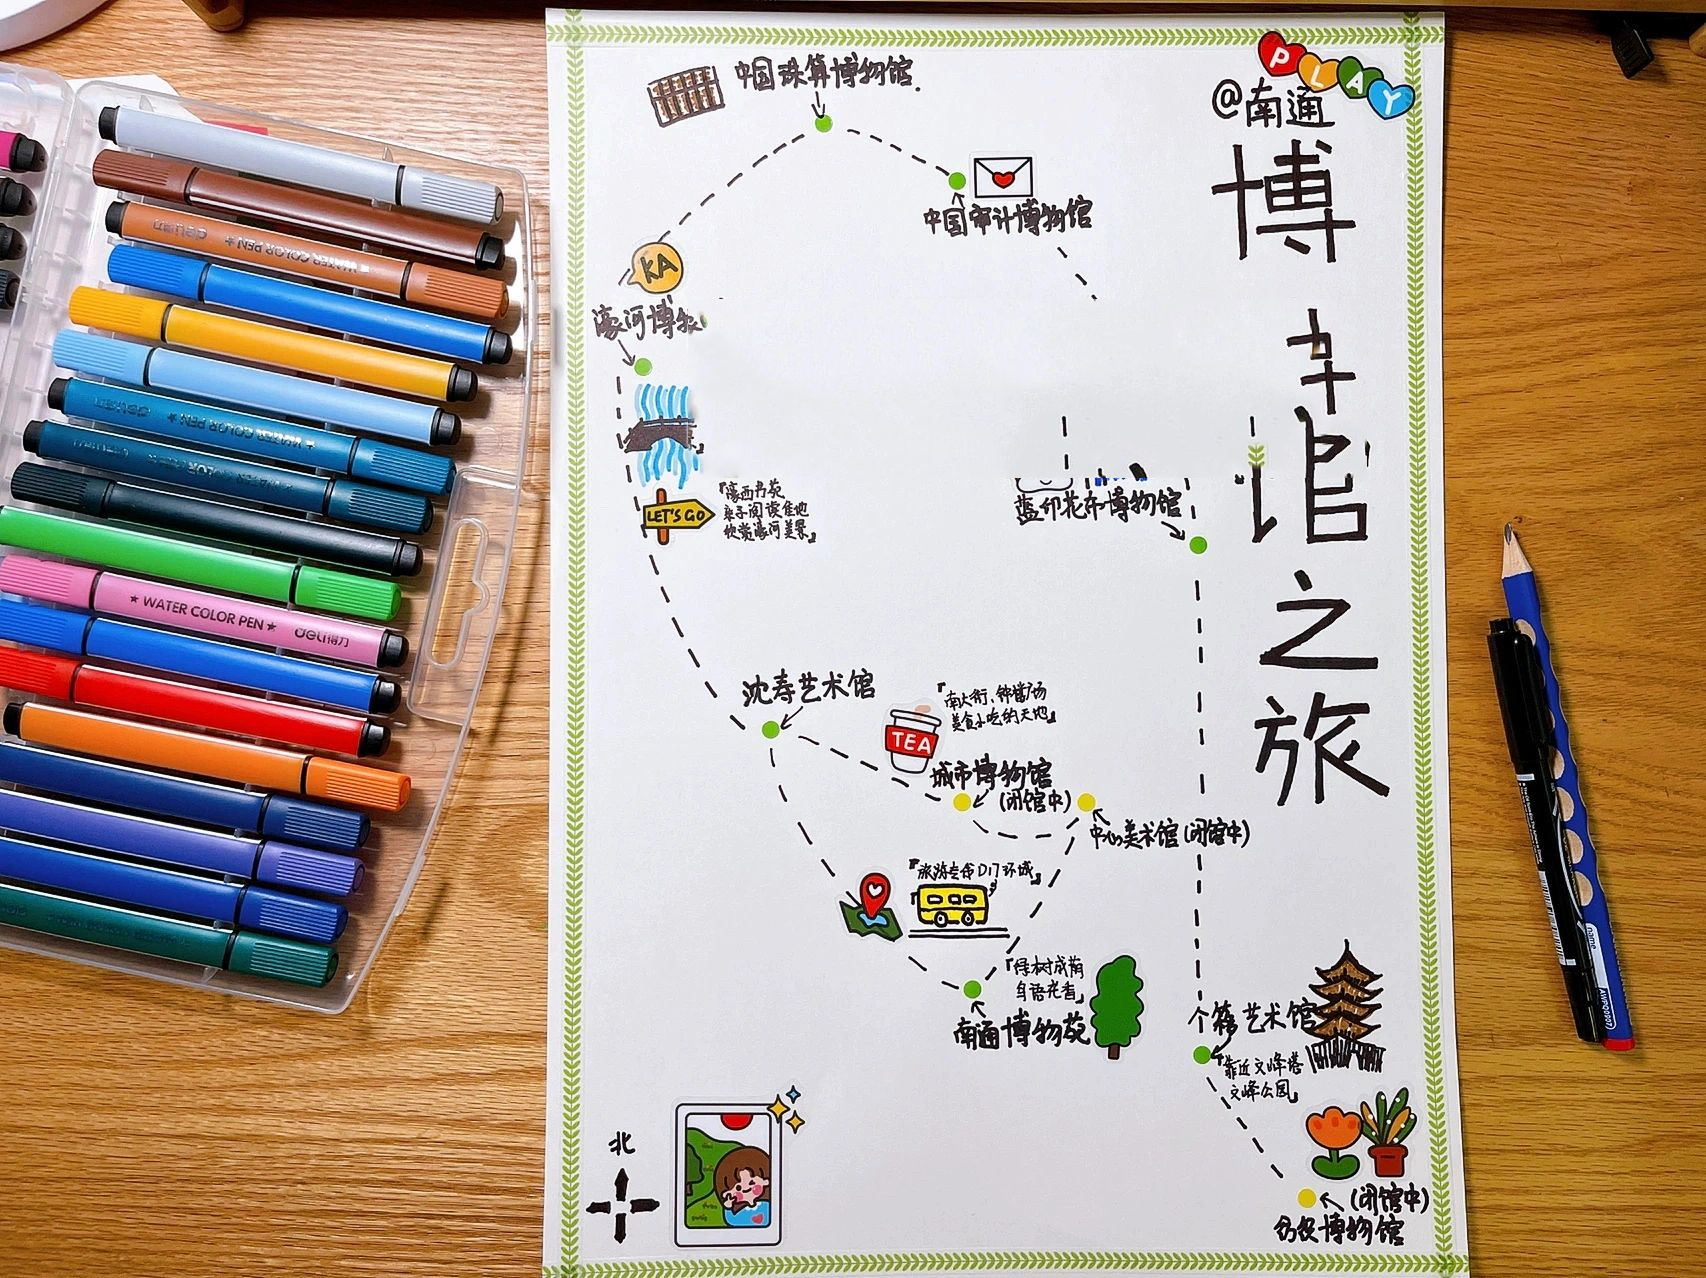 中国珠算博物馆.
PLAY
@南通
博
馆
之
旅
中国审计博物馆
KA
濠河博
LET'S GO
『濠西书苑
亲子阅读佳地
欣赏濠河美景』
蓝印花布博物馆
沈寿艺术馆
『南大街、钟楼广场
美食小吃的天地』
TEA
城市博物馆
(闭馆中)
中心美术馆(闭馆中)
『旅游专线D17环城』
『绿树成荫
鸟语花香』
南通博物苑
个簃艺术馆
『靠近文峰塔
文峰公园』
(闭馆中)
纺织博物馆
北
WATER COLOR PEN
WATER COLOR PEN
★ WATER COLOR PEN ★ deli得力
name